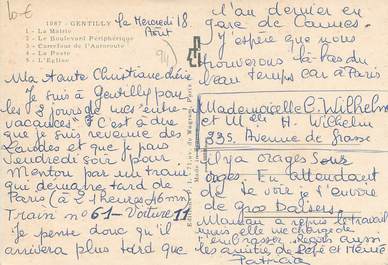 10€
1087 - GENTILLY
1 - La Mairie
2 - Le Boulevard Périphérique
3 - Carrefour de l'Autoroute
4 - La Poste
5 - L'Église
Le Mercredi 18
Août
94
Ma tante Christiane chérie
Je suis à Gentilly pour
les 3 jours de mes "entre-
vacances". C'est à dire
que je suis revenue des
Landes et que je pars
Vendredi soir pour
Menton par un train
qui démarre tard de
Paris (à 21 heures 46 mn)
Train n° 61 - Voiture 11
Je pense donc qu'il
arrivera plus tard que
l'an dernier en
gare de Cannes.
J'espère que nous
trouverons là-bas du
beau temps car à Paris
Mademoiselle C. Wilhelm
et Melle H. Wilhelm
335, Avenue de Grasse
il y a orages sous
orages. En attendant
de te voir je t'envoie
de gros baisers
Maman a repris le travail
mais elle me charge de
t'embrasser. Reçois aussi
les amitiés de Pépé et Mémé
Patricia